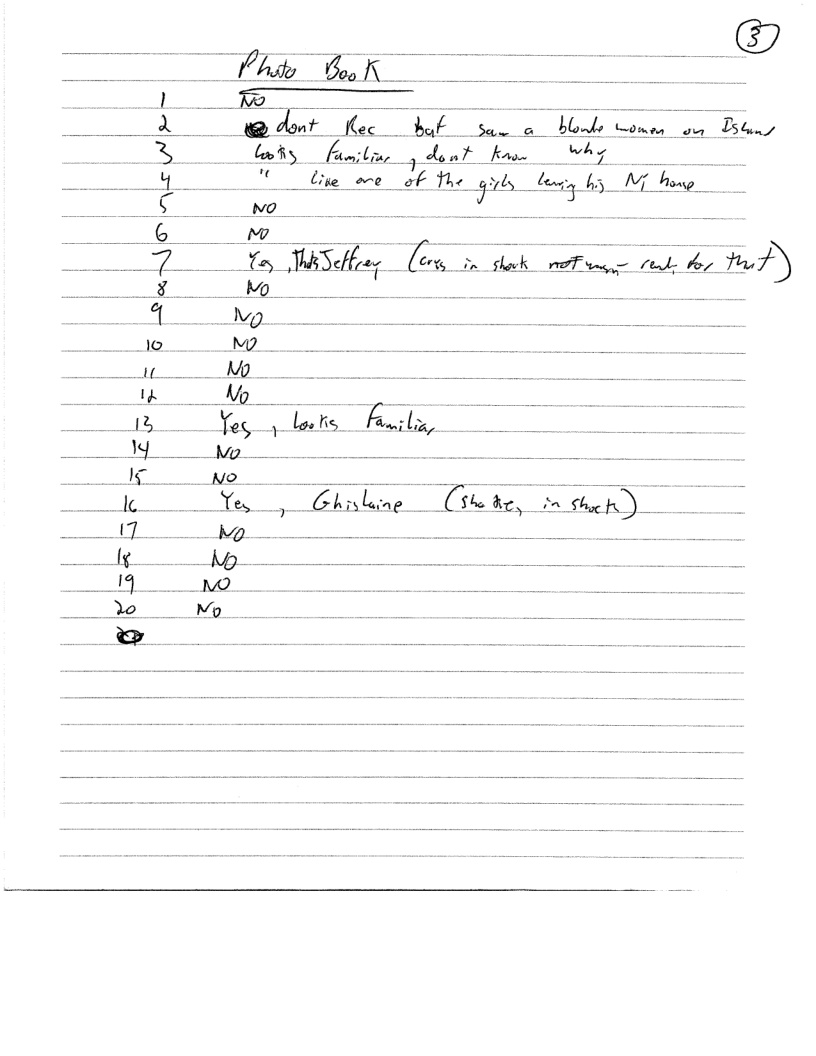 3
Photo Book
1 NO
2 dont Rec but saw a blonde women on Island
3 looks familiar, dont know why
4 " like one of the girls leaving his NY house
5 NO
6 NO
7 Yes, Thats Jeffrey (cries in shock not ready for that)
8 NO
9 NO
10 NO
11 NO
12 NO
13 Yes, looks familiar
14 NO
15 NO
16 Yes, Ghislaine (shakes, in shock)
17 NO
18 NO
19 NO
20 No